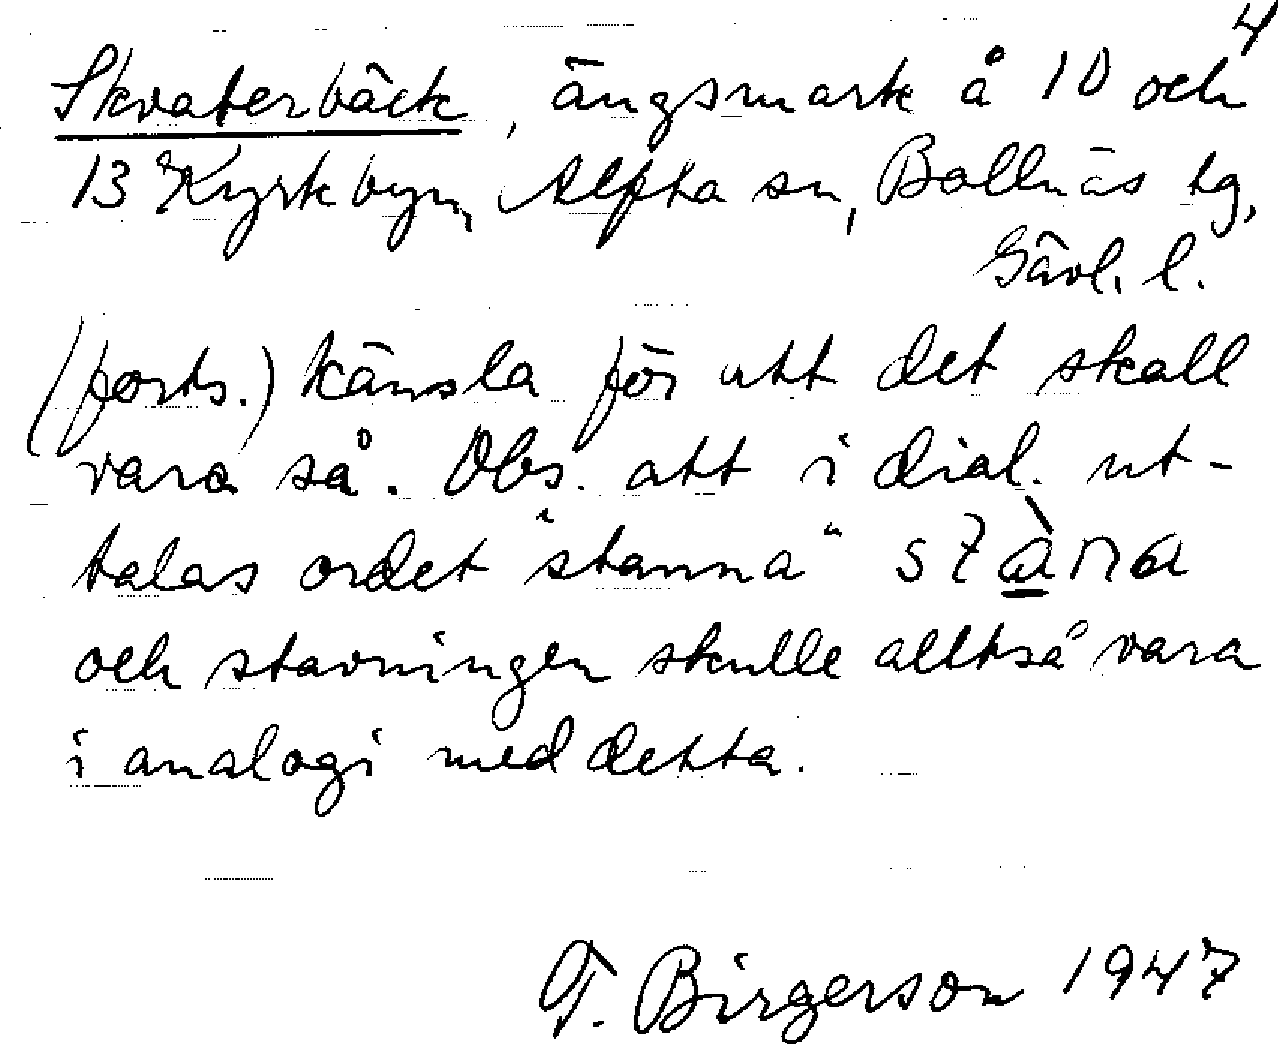 4
Skvaterbäck, ängsmark å 10 och
13 Kyrkbyn, Alfta sn, Bollnäs tg,
Gävl. l.
(forts.) känsla för att det skall
vara så. Obs. att i dial. ut-
talas ordet "stanna"
och stavningen skulle alltså vara
i analogi med detta.
T. Birgerson 1947